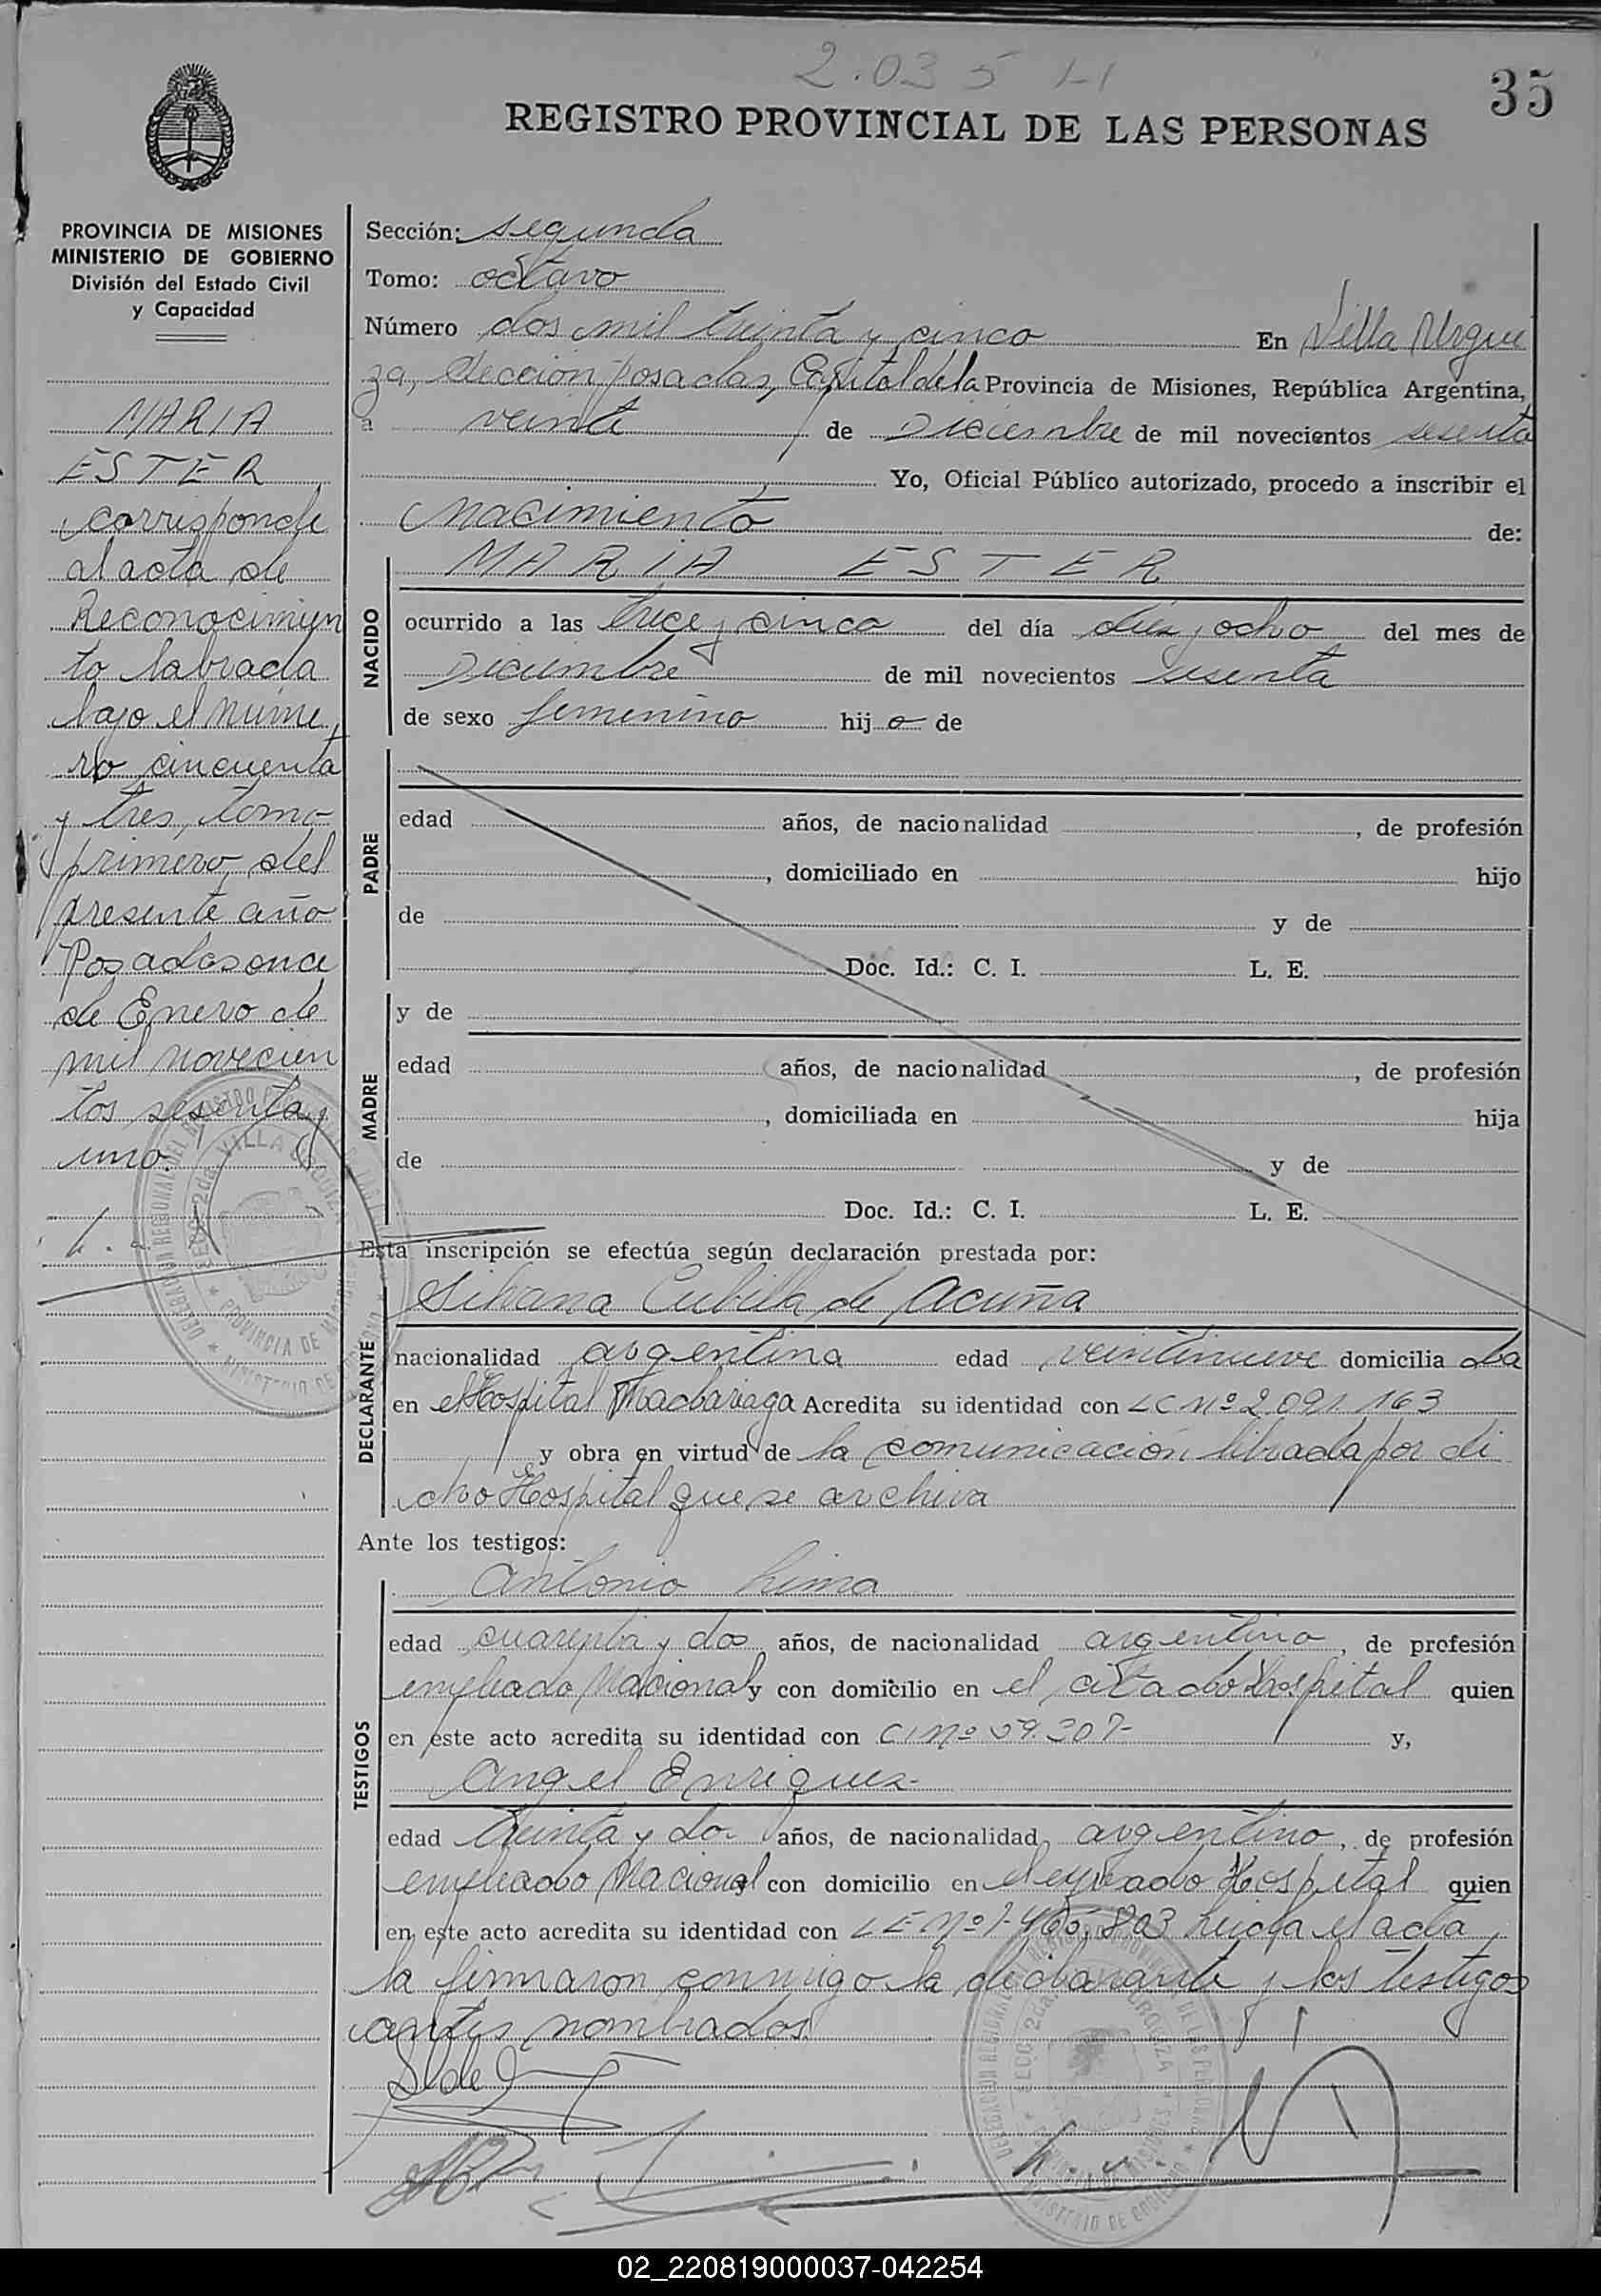 2.035
35
REGISTRO PROVINCIAL DE LAS PERSONAS
PROVINCIA DE MISIONES
MINISTERIO DE GOBIERNO
División del Estado Civil
y Capacidad
MARIA
ESTER
corresponde
al acta de
Reconocimien
to labrada
bajo el núme
ro cincuenta
y tres, tomo
primero, del
presente año
Posadas once
de Enero de
mil novecien
tos sesenta y
uno.
Sección: segunda
Tomo: octavo
Número dos mil treinta y cinco En Villa Urqui
za, Sección Posadas, Capital de la Provincia de Misiones, República Argentina,
a veinte de Diciembre de mil novecientos sesenta
Yo, Oficial Público autorizado, procedo a inscribir el
nacimiento de:
NACIDO
MARIA ESTER
ocurrido a las trece y cinco del día diez y ocho del mes de
Diciembre de mil novecientos sesenta
de sexo femenino hij a de
PADRE
edad años, de nacionalidad , de profesión
, domiciliado en hijo
de y de
Doc. Id.: C. I. L. E.
MADRE
y de
edad años, de nacionalidad , de profesión
, domiciliada en hija
de y de
Doc. Id.: C. I. L. E.
Esta inscripción se efectúa según declaración prestada por:
DECLARANTE
Silvana Cubilla de Acuña
nacionalidad argentina edad veintinueve domicilia da
en el Hospital Madariaga Acredita su identidad con LC Nº 2.091.163
y obra en virtud de la comunicación librada por di
cho Hospital que se archiva
Ante los testigos:
TESTIGOS
Antonio Lima
edad cuarenta y dos años, de nacionalidad argentino, de profesión
empleado Nacional y con domicilio en el citado Hospital quien
en este acto acredita su identidad con CI Nº 59.307- y,
Angel Enriquez-
edad treinta y dos años, de nacionalidad argentino, de profesión
empleado Nacional y con domicilio en el expresado Hospital quien
en este acto acredita su identidad con LE Nº 7.465.803 Leída el acta
la firmaron conmigo la declarante y los testigos
antes nombrados.
02_220819000037-042254